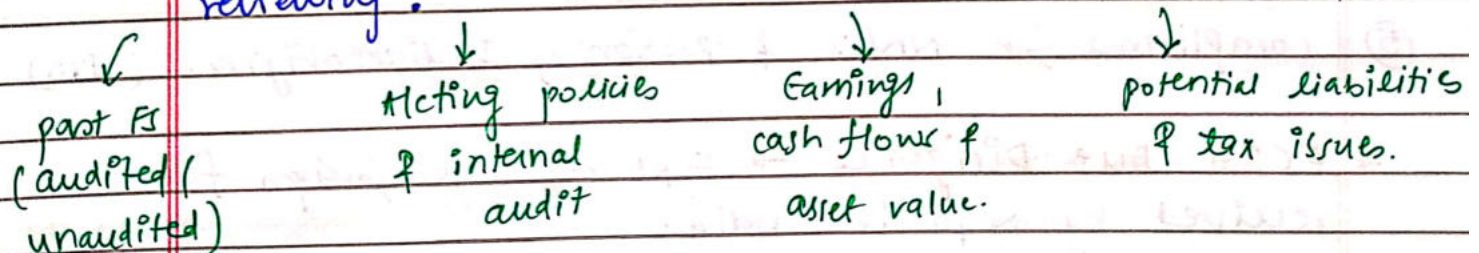 reviewing :
past FS
(audited/
unaudited)
Acting policies
& internal
audit
Earnings,
cash flows &
asset value.
potential liabilities
& tax issues.